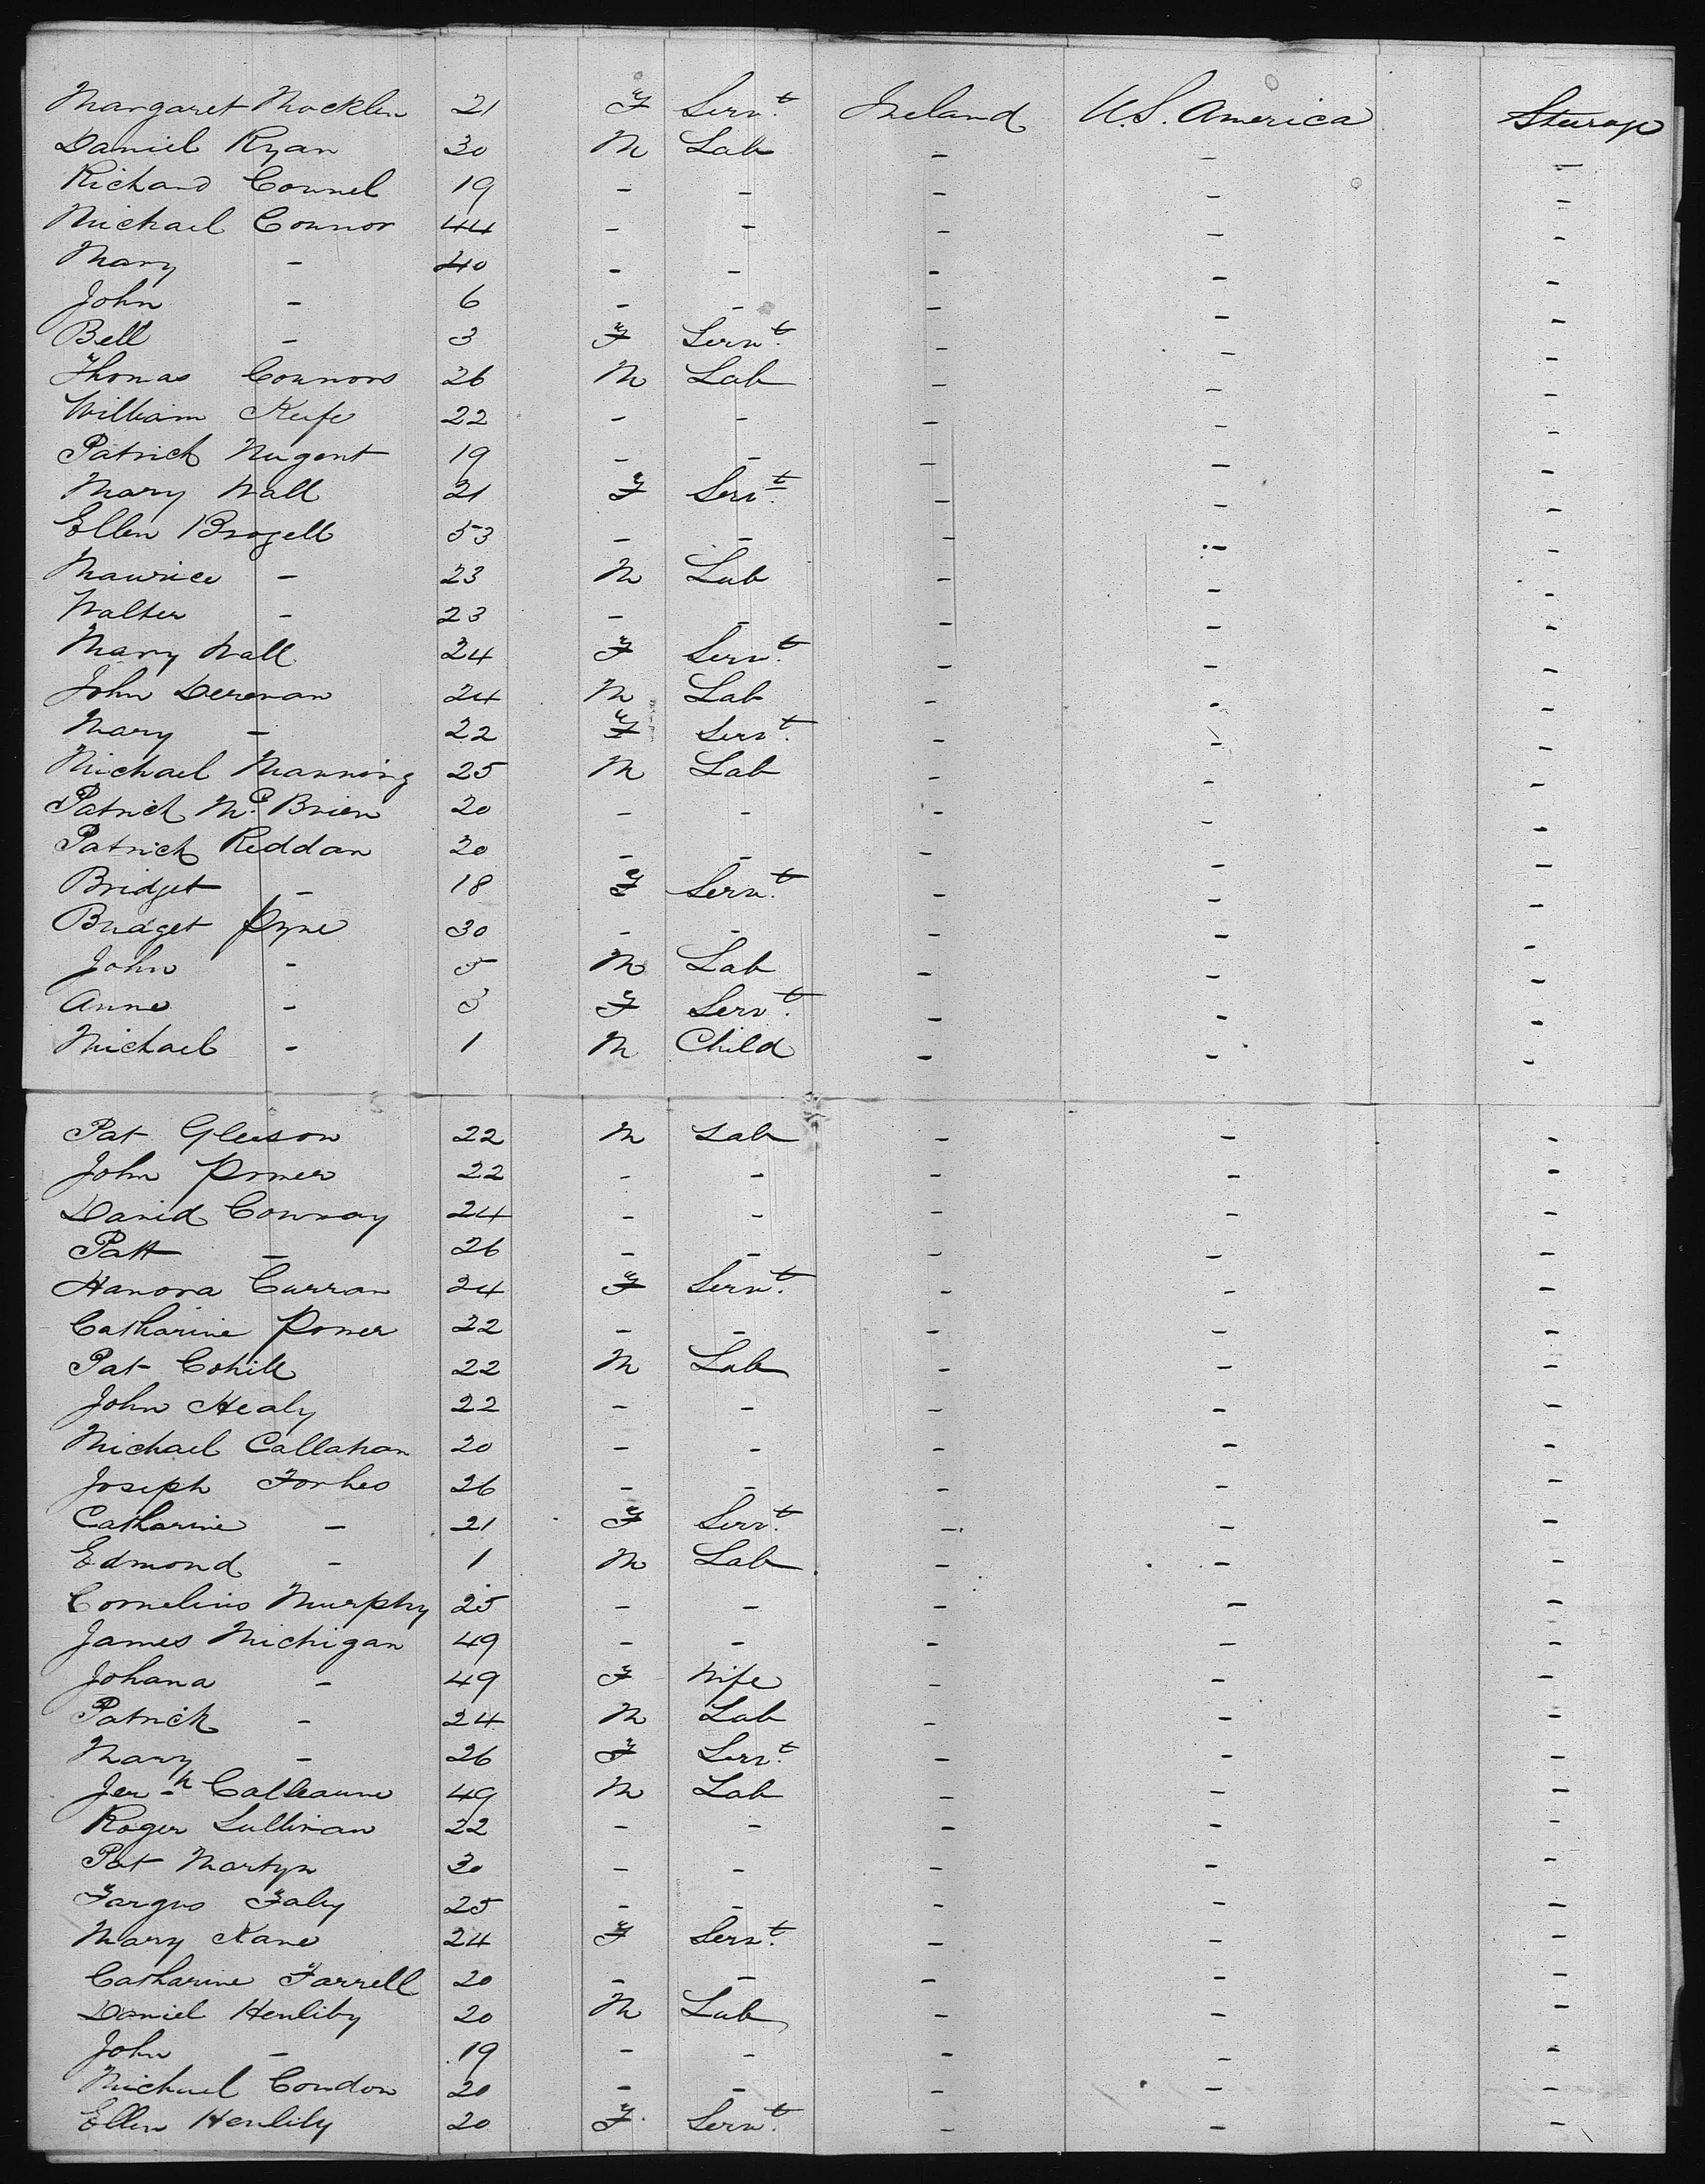 Margaret Mocklin 21 F Servt. Ireland U.S. America Steerage
Daniel Ryan 30 M Lab - - -
Richard Connel 19 - - - - -
Michael Connor 44 - - - - -
Mary - 40 - - - - -
John - 6 - - - - -
Bell - 3 F Servt. - - -
Thomas Connors 26 M Lab - - -
William Keefe 22 - - - - -
Patrick Nugent 19 - - - - -
Mary Wall 21 F Servt. - - -
Ellen 53 - - - - -
Maurice - 23 M Lab - - -
Walter - 23 - - - - -
Mary Wall 24 F Servt. - - -
John 24 M Lab - - -
Mary - 22 F Servt. - - -
Michael Manning 25 M Lab - - -
Patrick Mc. Brien 20 - - - - -
Patrick Reddan 20 - - - - -
Bridget - 18 F Servt. - - -
Bridget Pyne 30 - - - - -
John - 5 M Lab - - -
Anne - 3 F Servt. - - -
Michael - 1 M Child - - -
Pat Gleeson 22 M Lab - - -
John Power 22 - - - - -
David Conway 24 - - - - -
Patt - 26 - - - - -
Hanora Curran 24 F Servt. - - -
Catharine Power 22 - - - - -
Pat Cohill 22 M Lab - - -
John Healy 22 - - - - -
Michael Callahan 20 - - - - -
Joseph Forhes 26 - - - - -
Catharine - 21 F Servt. - - -
Edmond - 1 M Lab - - -
Cornelius Murphy 25 - - - - -
James Michigan 49 - - - - -
Johana - 49 F Wife - - -
Patrick - 24 M Lab - - -
Mary - 26 F Servt. - - -
Jerh Calleaune 49 M Lab - - -
Roger Sullivan 22 - - - - -
Pat Martyn 30 - - - - -
Fargus Faly 25 - - - - -
Mary Kane 24 F Servt. - - -
Catharine Farrell 20 - - - - -
Daniel Henliby 20 M Lab - - -
John - 19 - - - - -
Michael Condon 20 - - - - -
Ellen Henlily 20 F Servt. - - -